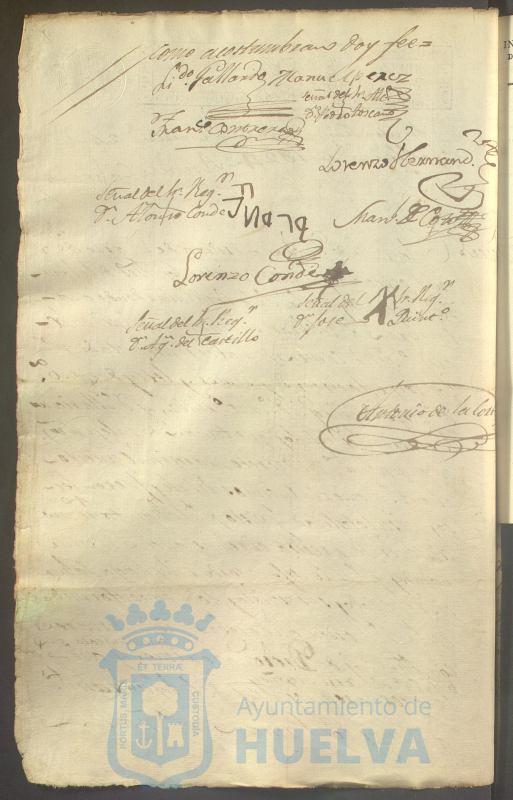 como acostumbran doy fee=
Li.do Gallardo Manuel Perez
señal del Sr. Alc.
Dn. Pedro Toscano
Fran.co Contreras
Lorenzo Hernand.
Señal del Sr. Reg.n
Dn. Alonso Conde
Man.l de
Lorenzo Conde
Señal del Sr. Reg.n
Dn. Jose
Señal del Sr. Reg.n
Dn. Ag.n del Castillo
Antonio de la Cor
ET TERRÆ
PORTUS MARIS
CUSTODIA
Ayuntamiento de
HUELVA